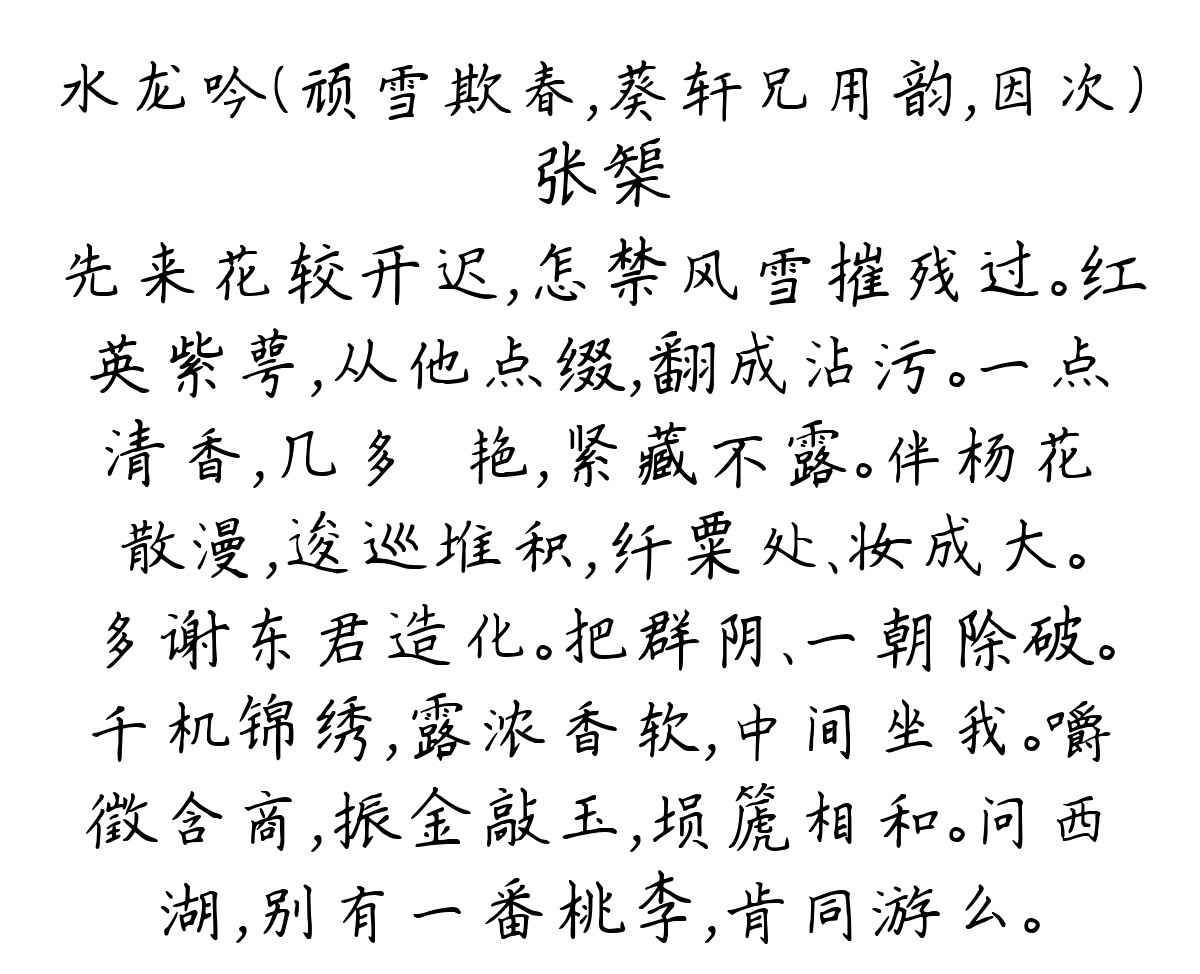 水龙吟(顽雪欺春,葵轩兄用韵,因次)
张榘
先来花较开迟,怎禁风雪摧残过。红
英紫萼,从他点缀,翻成沾污。一点
清香,几多 艳,紧藏不露。伴杨花
散漫,逡巡堆积,纤粟处、妆成大。
多谢东君造化。把群阴、一朝除破。
千机锦绣,露浓香软,中间坐我。嚼
徵含商,振金敲玉,埙篪相和。问西
湖,别有一番桃李,肯同游么。